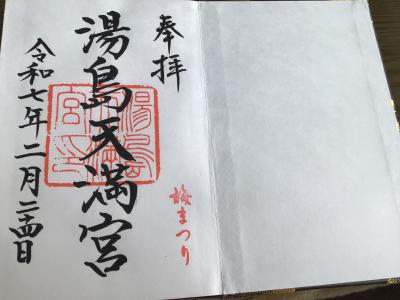 奉拝
湯島天満宮
令和七年二月二十四日
梅まつり
湯島天満宮印